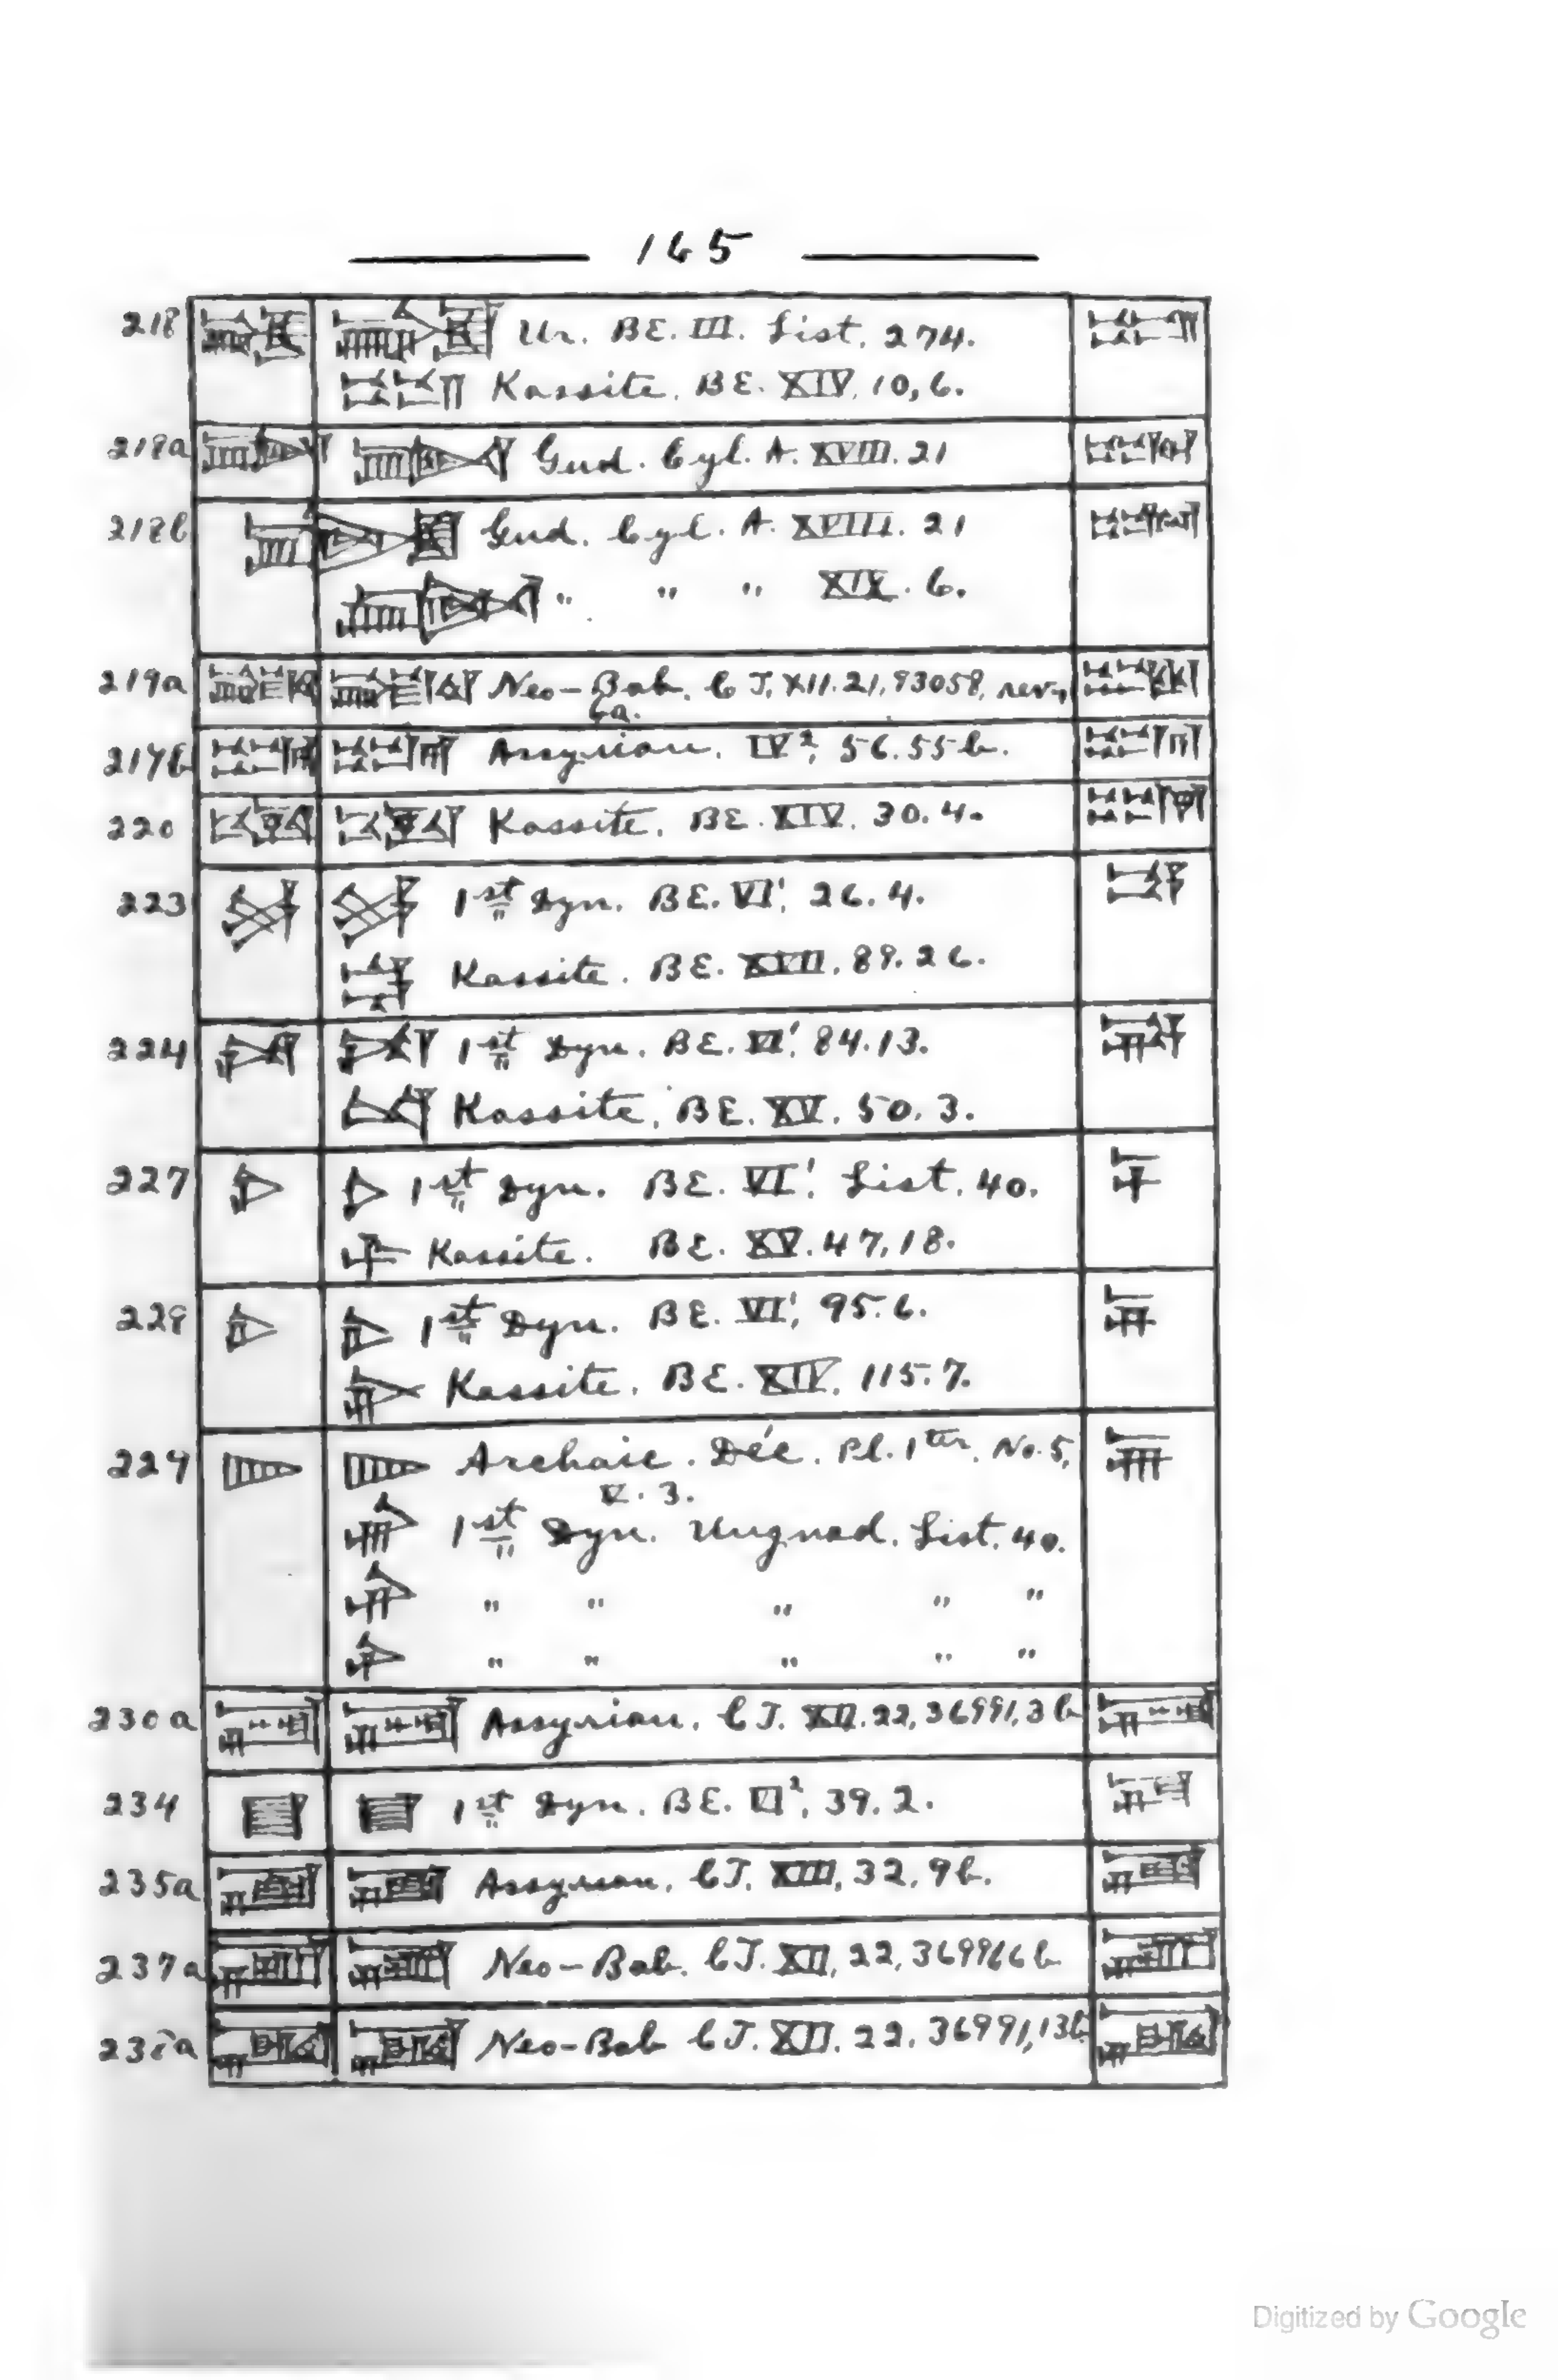 165
218 Ur. BE. III. List. 274.
Kassite. BE. XIV. 10, 6.
218a Gud. Cyl. A. XVIII. 21
218b Gud. Cyl. A. XVIII. 21
" " " XIX. 6.
219a Neo-Bab. CT. XII. 21, 93058, rev.,
6a.
219b Assyrian. IV², 56. 55b.
220 Kassite. BE. XIV. 30. 4.
223 1st Dyn. BE. VI¹, 26. 4.
Kassite. BE. XVII, 89. 26.
224 1st Dyn. BE. VI¹, 84. 13.
Kassite. BE. XV. 50. 3.
227 1st Dyn. BE. VI¹. List. 40.
Kassite. BE. XV. 47, 18.
228 1st Dyn. BE. VI¹, 95. 6.
Kassite. BE. XIV. 115. 7.
229 Archaic. Déc. Pl. 1ter. No. 5,
V. 3.
1st Dyn. Ungnad. List. 40.
" " " " "
" " " " "
230a Assyrian. CT. XII. 22, 36991, 3b
234 1st Dyn. BE. VI², 39. 2.
235a Assyrian. CT. XIII, 32, 9b.
237a Neo-Bab. CT. XII, 22,
238a Neo-Bab CT. XII. 22. 36991, 13b
Digitized by Google